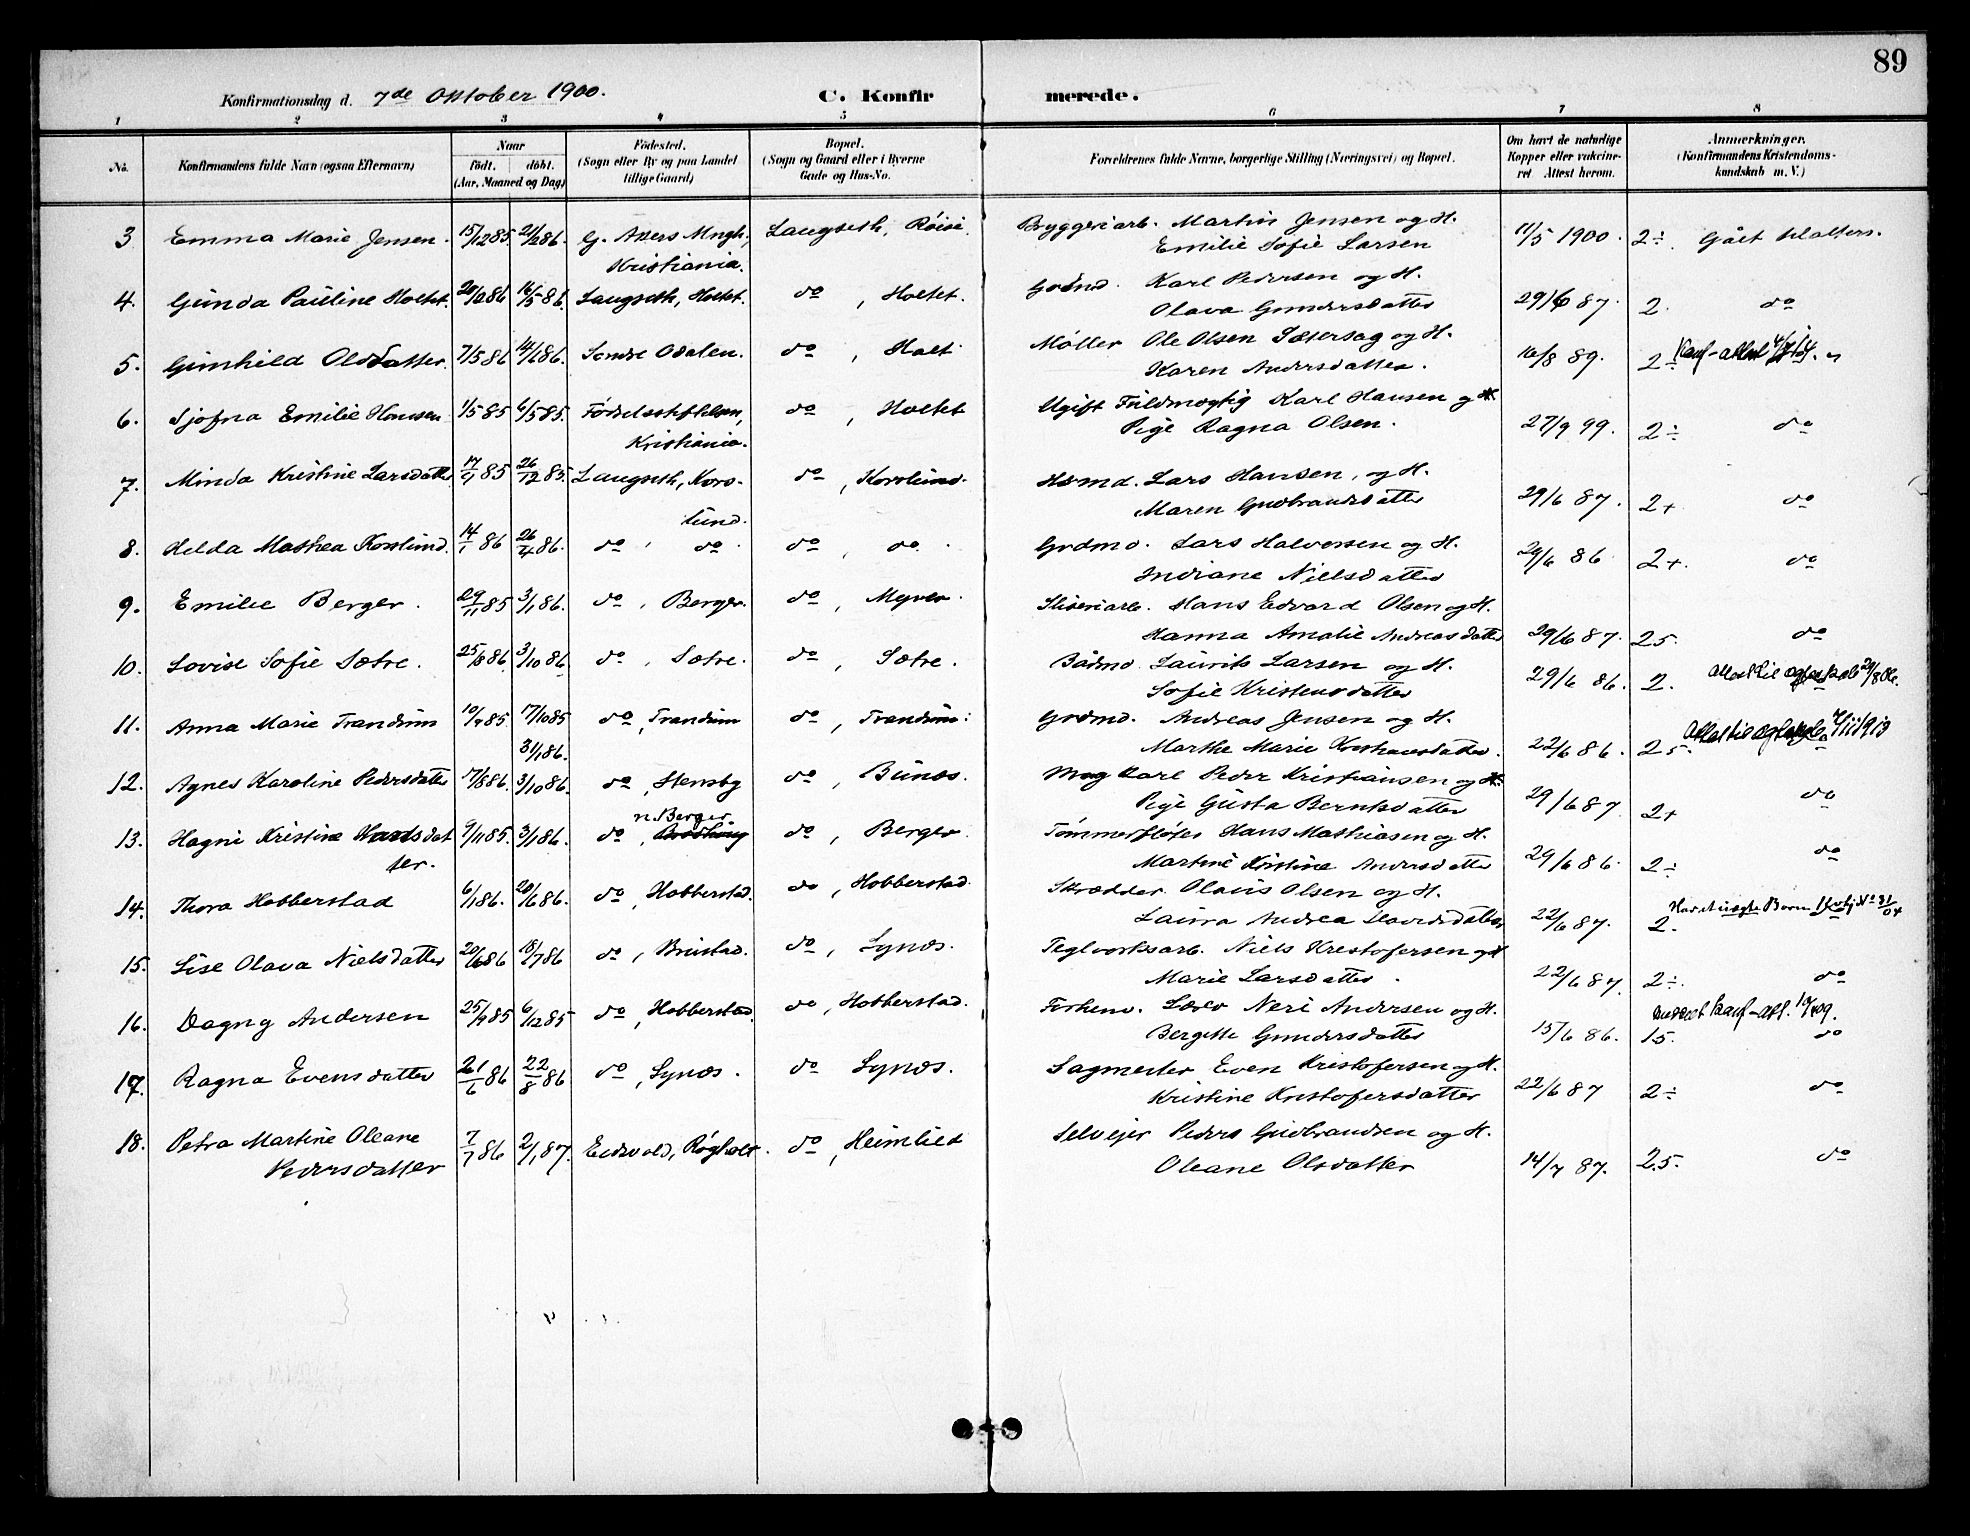 89
Konfirmationsdag d. 7de Oktober 1900. C. Konfirmerede.
1 2 3 4 5 6 7 8
No. Konfirmandens fulde Navn (ogsaa Efternavn) Naar födt. döbt. (Aar, Maaned og Dag) Födested. (Sogn eller By og paa Landet tillige Gaard) Bopæl. (Sogn og Gaard eller i Byerne Gade og Hus-No. Forældrenes fulde Navne, borgerlige Stilling (Næringsvei) og Bopæl. Om havt de naturlige Kopper eller vakcineret Attest herom. Anmærkninger. (Konfirmandens Kristendomskundskab m. V.)
3 Emma Marie Jensen. 15/12 85. 21/2 86. G. Akers Mngh., Langseth, Röise Bryggeriarb. Martin Jensen og H. 11/5 1900. 2÷. Gått til alters.
Kristiania. Emilie Sofie Larsen
4. Gunda Pauline Holtet. 86 16/5 86. Langseth, Holtet. do, Holtet. Grdmd. Karl Pedersen og H. 29/6 87. 2. do
Olava Gundersdatter
5. Gunhild Olsdatter. 7/5 86 14/6 86. Søndre Odalen. do, Holt Møller Ole Olsen Sætersag og H. 16/8 89. 2÷
Karen Andersdatter.
6. Sjofna Emilie Hansen 1/5 85 6/5 85. Fødselsstiftelsen, do, Holtet Ugift Fuldmægtig Karl Hansen og 27/9 99. 2÷ do
Kristiania. Pige Ragna Olsen.
7. Minda Kristine Larsdatter 17/9 85 26/12 85. Langseth, Kors- do, Korslund. Husmd. Lars Hansen, og H. 29/6 87. 2+ do
lund. Maren Gudbrandsdatter
8. Helda Mathea Korslund. 14/1 86 26/4 86. do, do. do, do. Grdmd. Lars Halversen og H. 29/6 86. 2+. do
Indiane Nielsdatter
9. Emilie Berger. 29/11 85 3/1 86. do, Berger. do, Myrer. Sliberiarb. Hans Edvard Olsen og H.
Hanna Amalie Andreasdatter 29/6 87. 25. do
10. Lovise Sofie Sætre. 25/8 86. 3/10 86 do, Sætre. do, Sætre. Bådmd. Laurits Larsen og H. 29/6 86. 2.
Sofie Kristensdatter
11. Anna Marie Trandum 10/7 85 17/10 85 do, Trandum do, Trandum. Grdmd. Andreas Jensen og H.
31/1 86. Marthe Marie 22/6 86. 25.
12. Agnes Karoline Pedersdatter 17/8 86. 3/10 86. do, Stensby do, Bunæs. Ung Karl Peder Kristiansen og 29/6 87 2+ do
Pige Gusta Berntsdatter
n. Berger.
13. Hagni Kristine Hansdat 9/11 85. 3/1 86. do, do, Berger. Tømmerfløter Hans Mathiasen og H. 29/6 86. 2÷ do
ter. Martine Kristine Andersdatter
14. Thora Hobberstad 6/1 86. 20/6 86. do, Hobberstad. do, Hobberstad. Skrædder Olaus Olsen og H.
Laura Andrea 22/6 87. 2.
15. Lise Olava Nielsdatter 20/6 86 18/7 86 do, Brustad. do, Lynæs. Teglverksarb. Niels Kristofersen og H
Marie Larsdatter. 22/6 87. 2÷. do
16. Dagny Andersen 85 6/12 85 do, Hobberstad. do, Hobberstad. Forhenv. Lærer Neri Andersen og H.
Bergitte Gundersdatter 15/6 86. 15. do
17. Ragna Evensdatter 21/6 86 22/8 86 do, Lynæs. do Lynæs. Sagmester Even Kristofersen og H.
Kristine Kristofersdatter 22/6 87 2÷ do
18. Petra Martine Oleane 7/7 86 2/1 87. Eidsvold, do, Heimlied Selvejer Peder Gudbrandsen og H.
Pedersdatter Oleane Olsdatter 14/7 87. 2.5. do